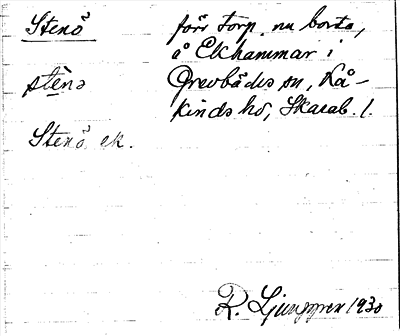 Stenö förr torp, nu borta,
å Ekhammar i
stènə Grevbäcks sn, Kå-
kinds hd, Skarab. l.
Stenö ek.
R. Ljunggren 1930